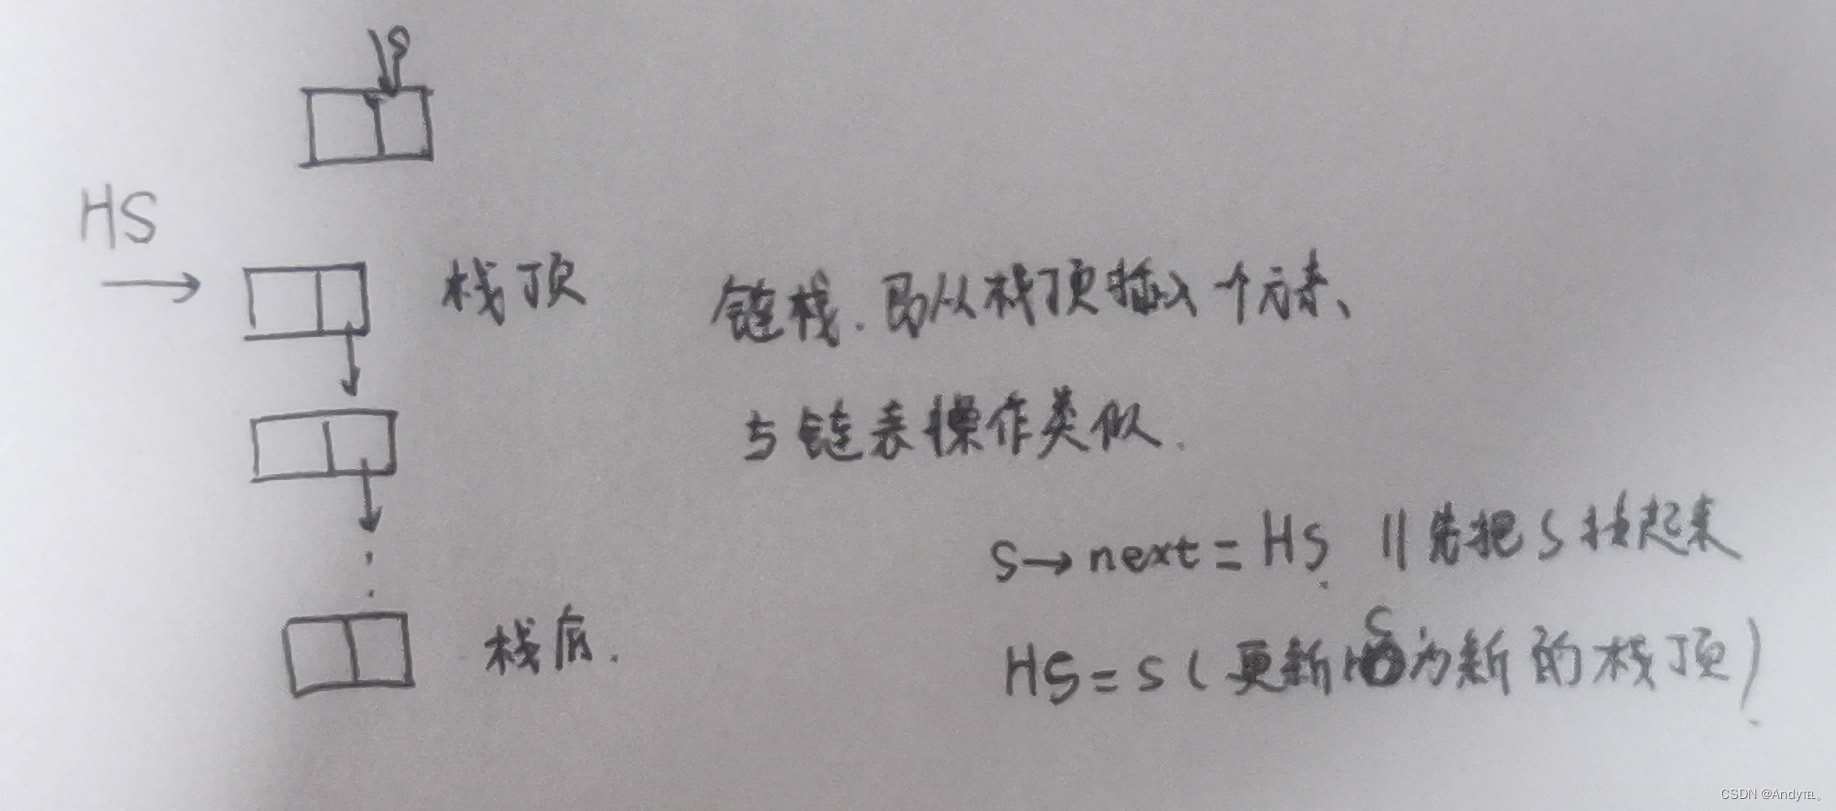 S
HS
栈顶
链栈.即从栈顶插入一个元素、
与链表操作类似.
S→next=HS //先把S挂起来
栈底.
HS=S(更新S为新的栈顶)
CSDN @Andy℡。